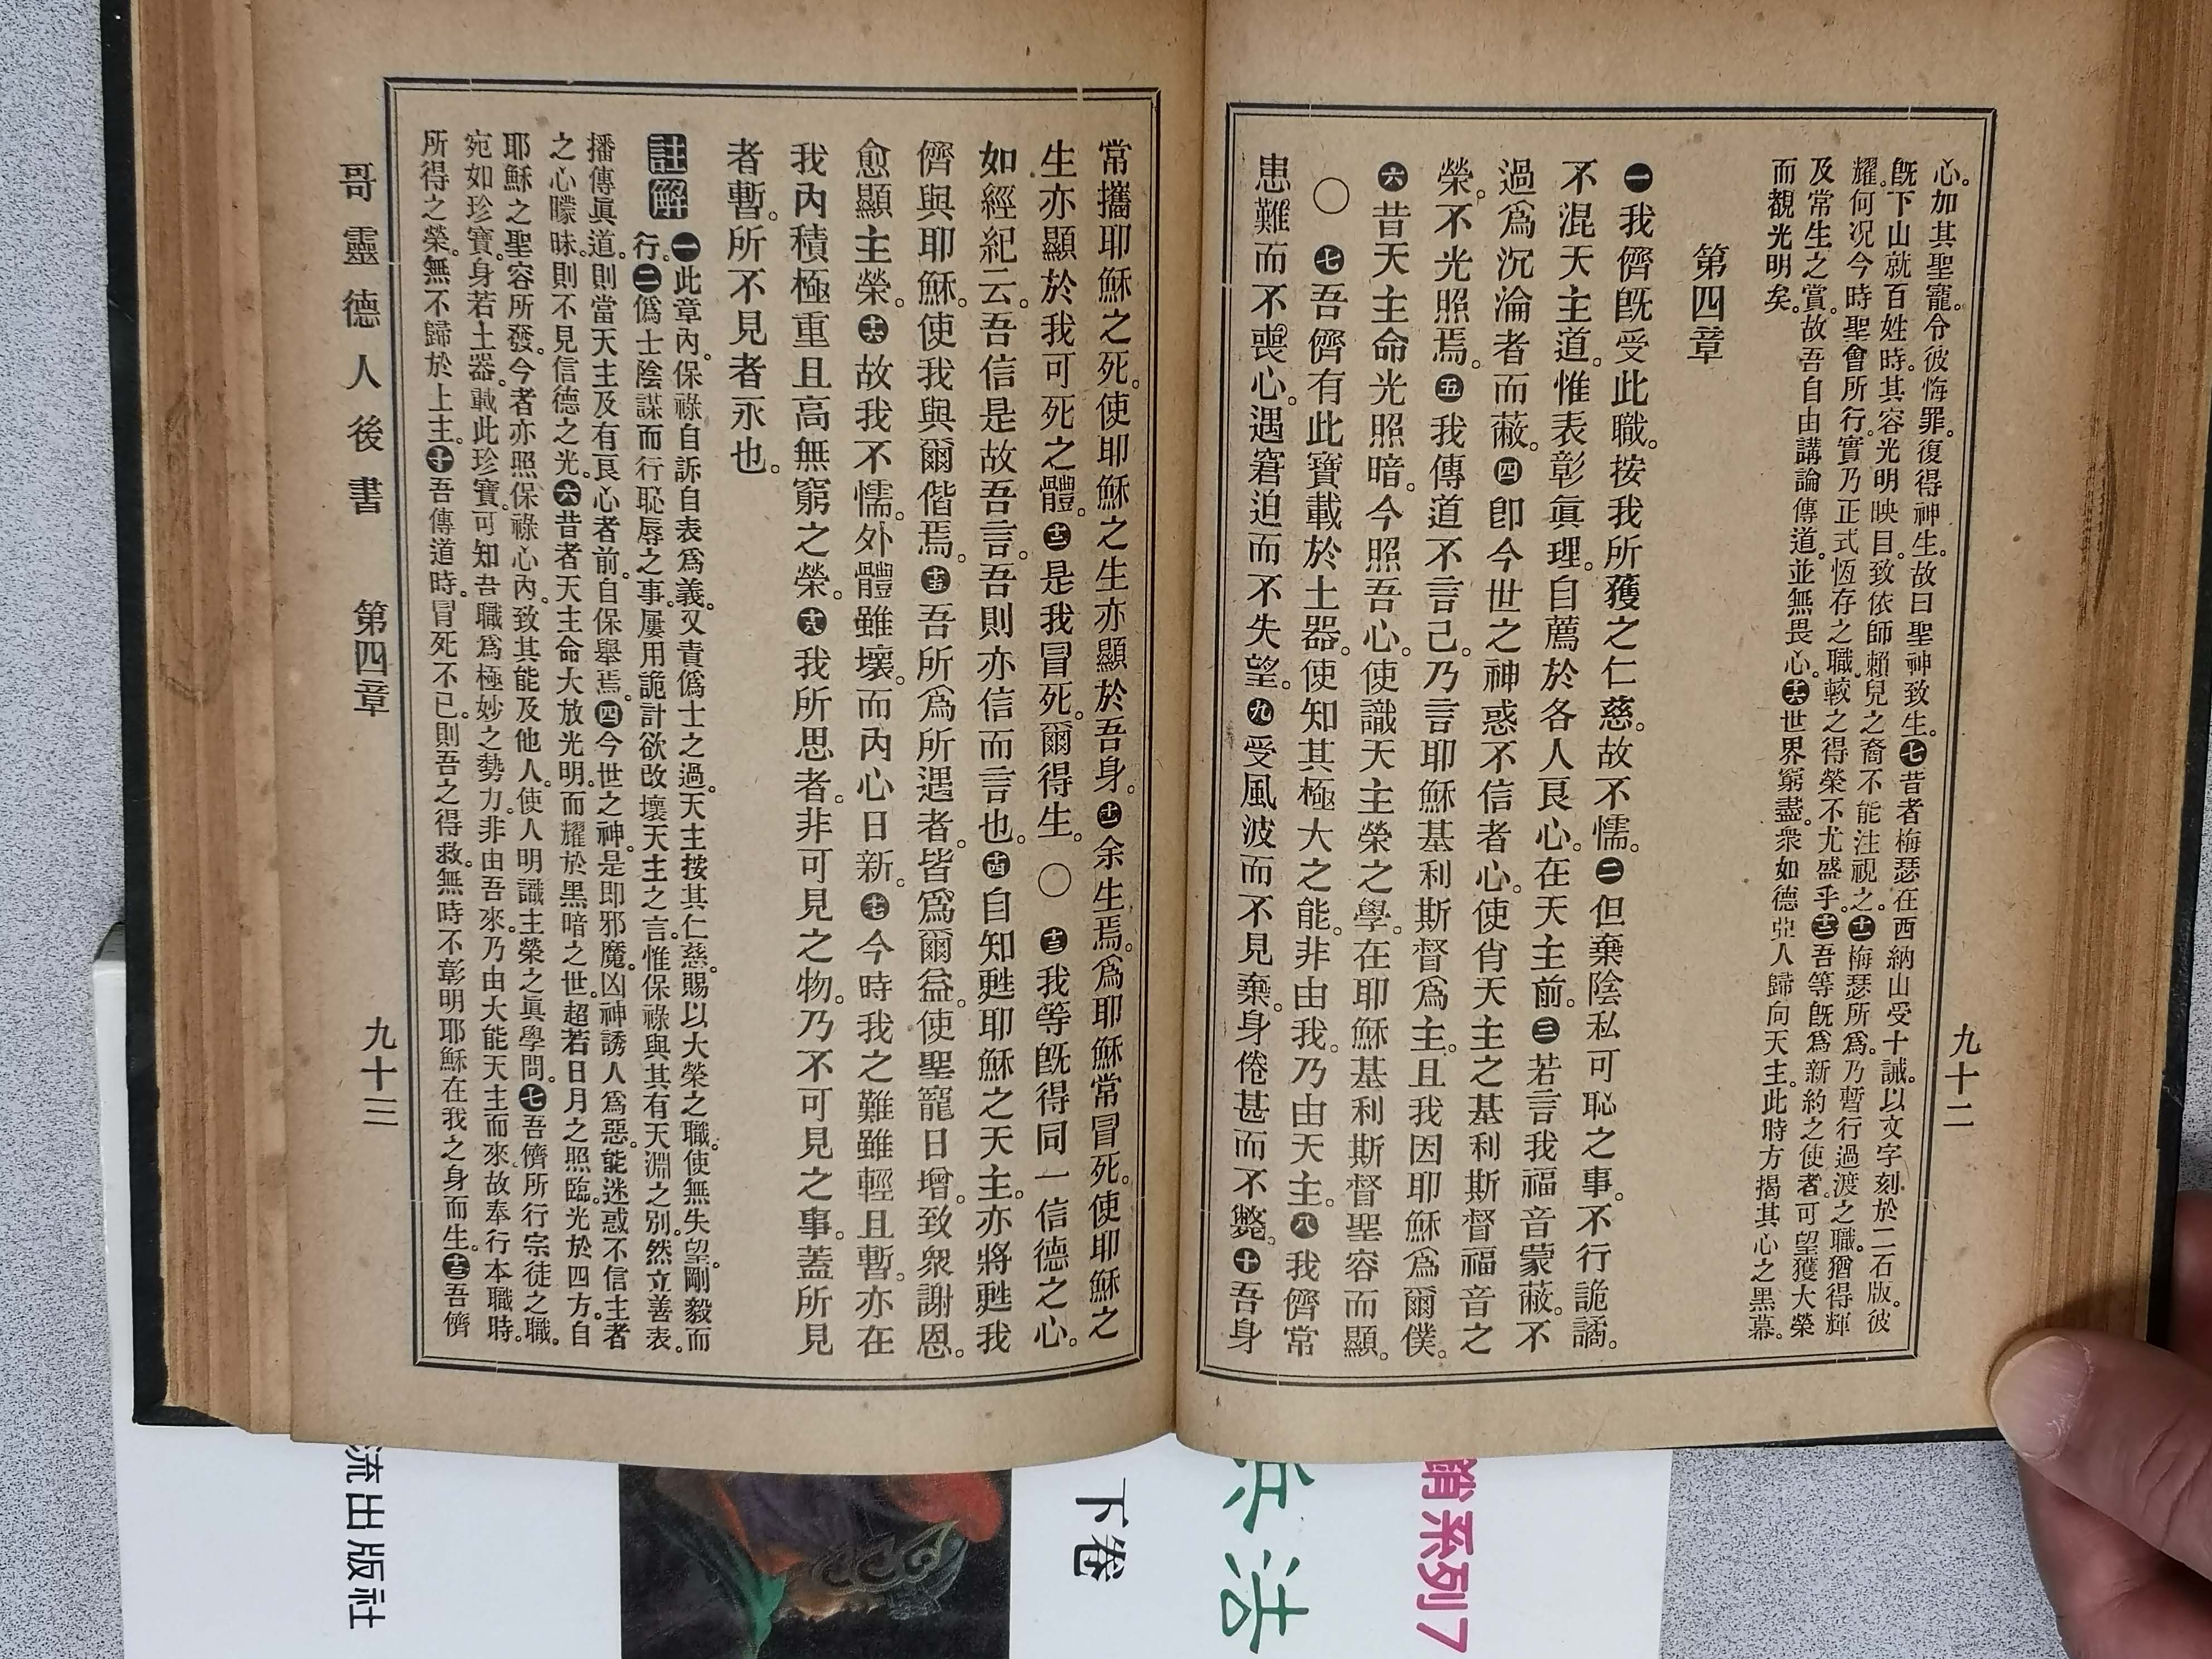 九十二
心。加其聖寵。令彼悔罪。復得神生。故曰聖神致生。七昔者梅瑟在西納山受十誡。以文字刻於二石版。彼
旣下山就百姓時。其容光明映目。致依師賴兒之裔不能注視之。十一梅瑟所爲。乃暫行過渡之職。猶得輝
耀。何况今時聖會所行。實乃正式恆存之職。較之得榮不尤盛乎。十二吾等旣爲新約之使者。可望獲大榮
及常生之賞。故吾自由講論傳道。並無畏心。十六世界窮盡。衆如德亞人歸向天主。此時方揭其心之黑幕。
而觀光明矣。
第四章
一我儕旣受此職。按我所獲之仁慈。故不懦。二但棄陰私可恥之事。不行詭譎。
不混天主道。惟表彰眞理。自薦於各人良心。在天主前。三若言我福音蒙蔽。不
過爲沉淪者而蔽。四卽今世之神惑不信者心。使肖天主之基利斯督福音之
榮。不光照焉。五我傳道不言己。乃言耶穌基利斯督爲主。且我因耶穌爲爾僕。
六昔天主命光照暗。今照吾心。使識天主榮之學。在耶穌基利斯督聖容而顯。
〇七吾儕有此寶載於土器。使知其極大之能。非由我。乃由天主。八我儕常
患難而不喪心。遇窘迫而不失望。九受風波而不見棄。身倦甚而不斃。十吾身
常攜耶穌之死。使耶穌之生亦顯於吾身。十一余生焉。爲耶穌常冒死。使耶穌之
生亦顯於我可死之體。十二是我冒死。爾得生。〇十三我等旣得同一信德之心。
如經紀云。吾信是故吾言。吾則亦信而言也。十四自知甦耶穌之天主。亦將甦我
儕與耶穌。使我與爾偕焉。十五吾所爲所遇者。皆爲爾益。使聖寵日增。致衆謝恩。
愈顯主榮。十六故我不懦。外體雖壞。而內心日新。十七今時我之難雖輕且暫。亦在
我內積極重且高無窮之榮。十八我所思者。非可見之物。乃不可見之事。蓋所見
者暫。所不見者永也。
註解 一此章內。保祿自訴自表爲義。又責僞士之過。天主按其仁慈。賜以大榮之職。使無失望。剛毅而
行。二僞士陰謀而行恥辱之事。屢用詭計欲改壞天主之言。惟保祿與其有天淵之別。然立善表。
播傳眞道。則當天主及有良心者前。自保舉焉。四今世之神。是即邪魔。凶神誘人爲惡。能迷惑不信主者
之心矇昧。則不見信德之光。六昔者天主命大放光明。而耀於黑暗之世。超若日月之照臨。光於四方。自
耶穌之聖容所發。今者亦照保祿心內。致其能及他人。使人明識主榮之眞學問。七吾儕所行宗徒之職。
宛如珍寶。身若土器。載此珍寶。可知吾職爲極妙之勢力。非由吾來。乃由大能天主而來。故奉行本職時。
所得之榮。無不歸於上主。十吾傳道時。冒死不已。則吾之得救。無時不彰明耶穌在我之身而生。十三吾儕
哥靈德人後書 第四章 九十三
系列7
兵法
下卷
流出版社